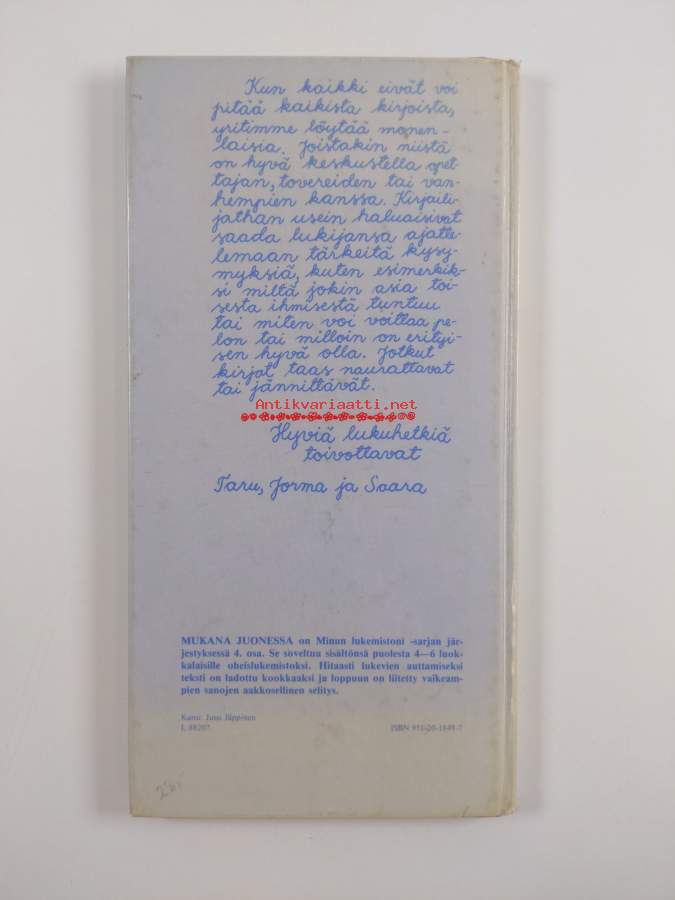 Kun kaikki eivät voi
pitää kaikista kirjoista,
yritimme löytää monen-
laisia. Joistakin niistä
on hyvä keskustella opet-
tajan, tovereiden tai van-
hempien kanssa. Kirjaili-
jathan usein haluaisivat
saada lukijansa ajatte-
lemaan tärkeitä kysy-
myksiä, kuten esimerkik-
si miltä jokin asia toi-
sesta ihmisestä tuntuu
tai miten voi voittaa pe-
lon tai milloin on erityi-
sen hyvä olla. Jotkut
kirjat taas naurattavat
tai jännittävät.
Antikvariaatti.net
Hyviä lukuhetkiä
toivottavat
Taru, Jorma ja Saara
MUKANA JUONESSA on Minun lukemistoni -sarjan jär-
jestyksessä 4. osa. Se soveltuu sisältönsä puolesta 4—6 luok-
kalaisille oheislukemistoksi. Hitaasti lukevien auttamiseksi
teksti on ladottu kookkaaksi ja loppuun on liitetty vaikeam-
pien sanojen aakkosellinen selitys.
Kansi: Jussi Jäppinen
L 88207
ISBN 951-26-1849-7